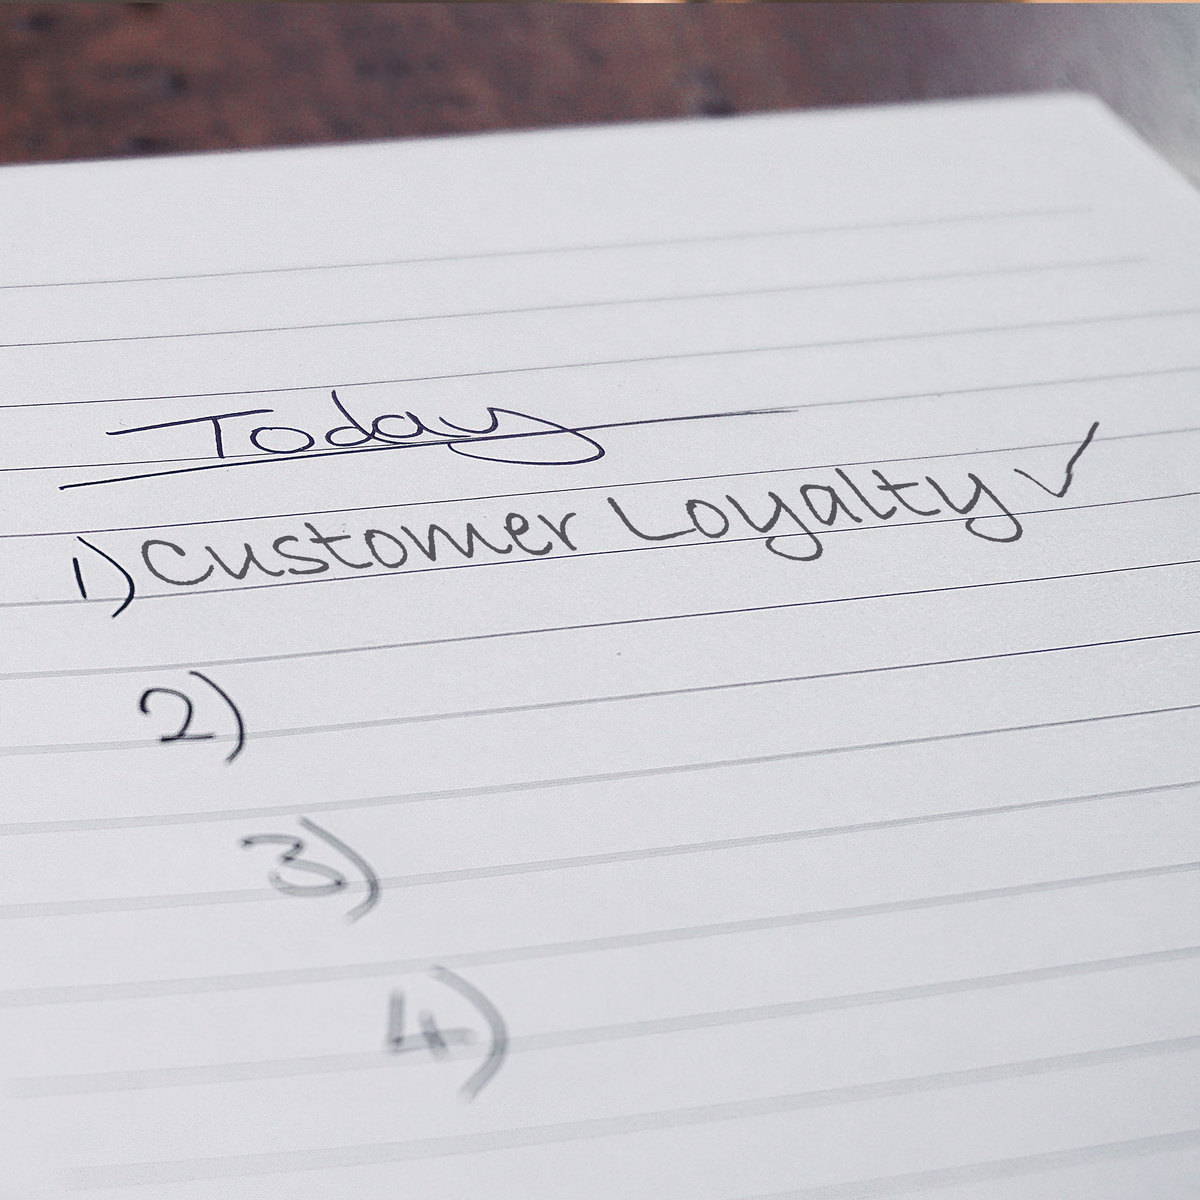 Today
1) Customer Loyalty ✓
2)
3)
4)